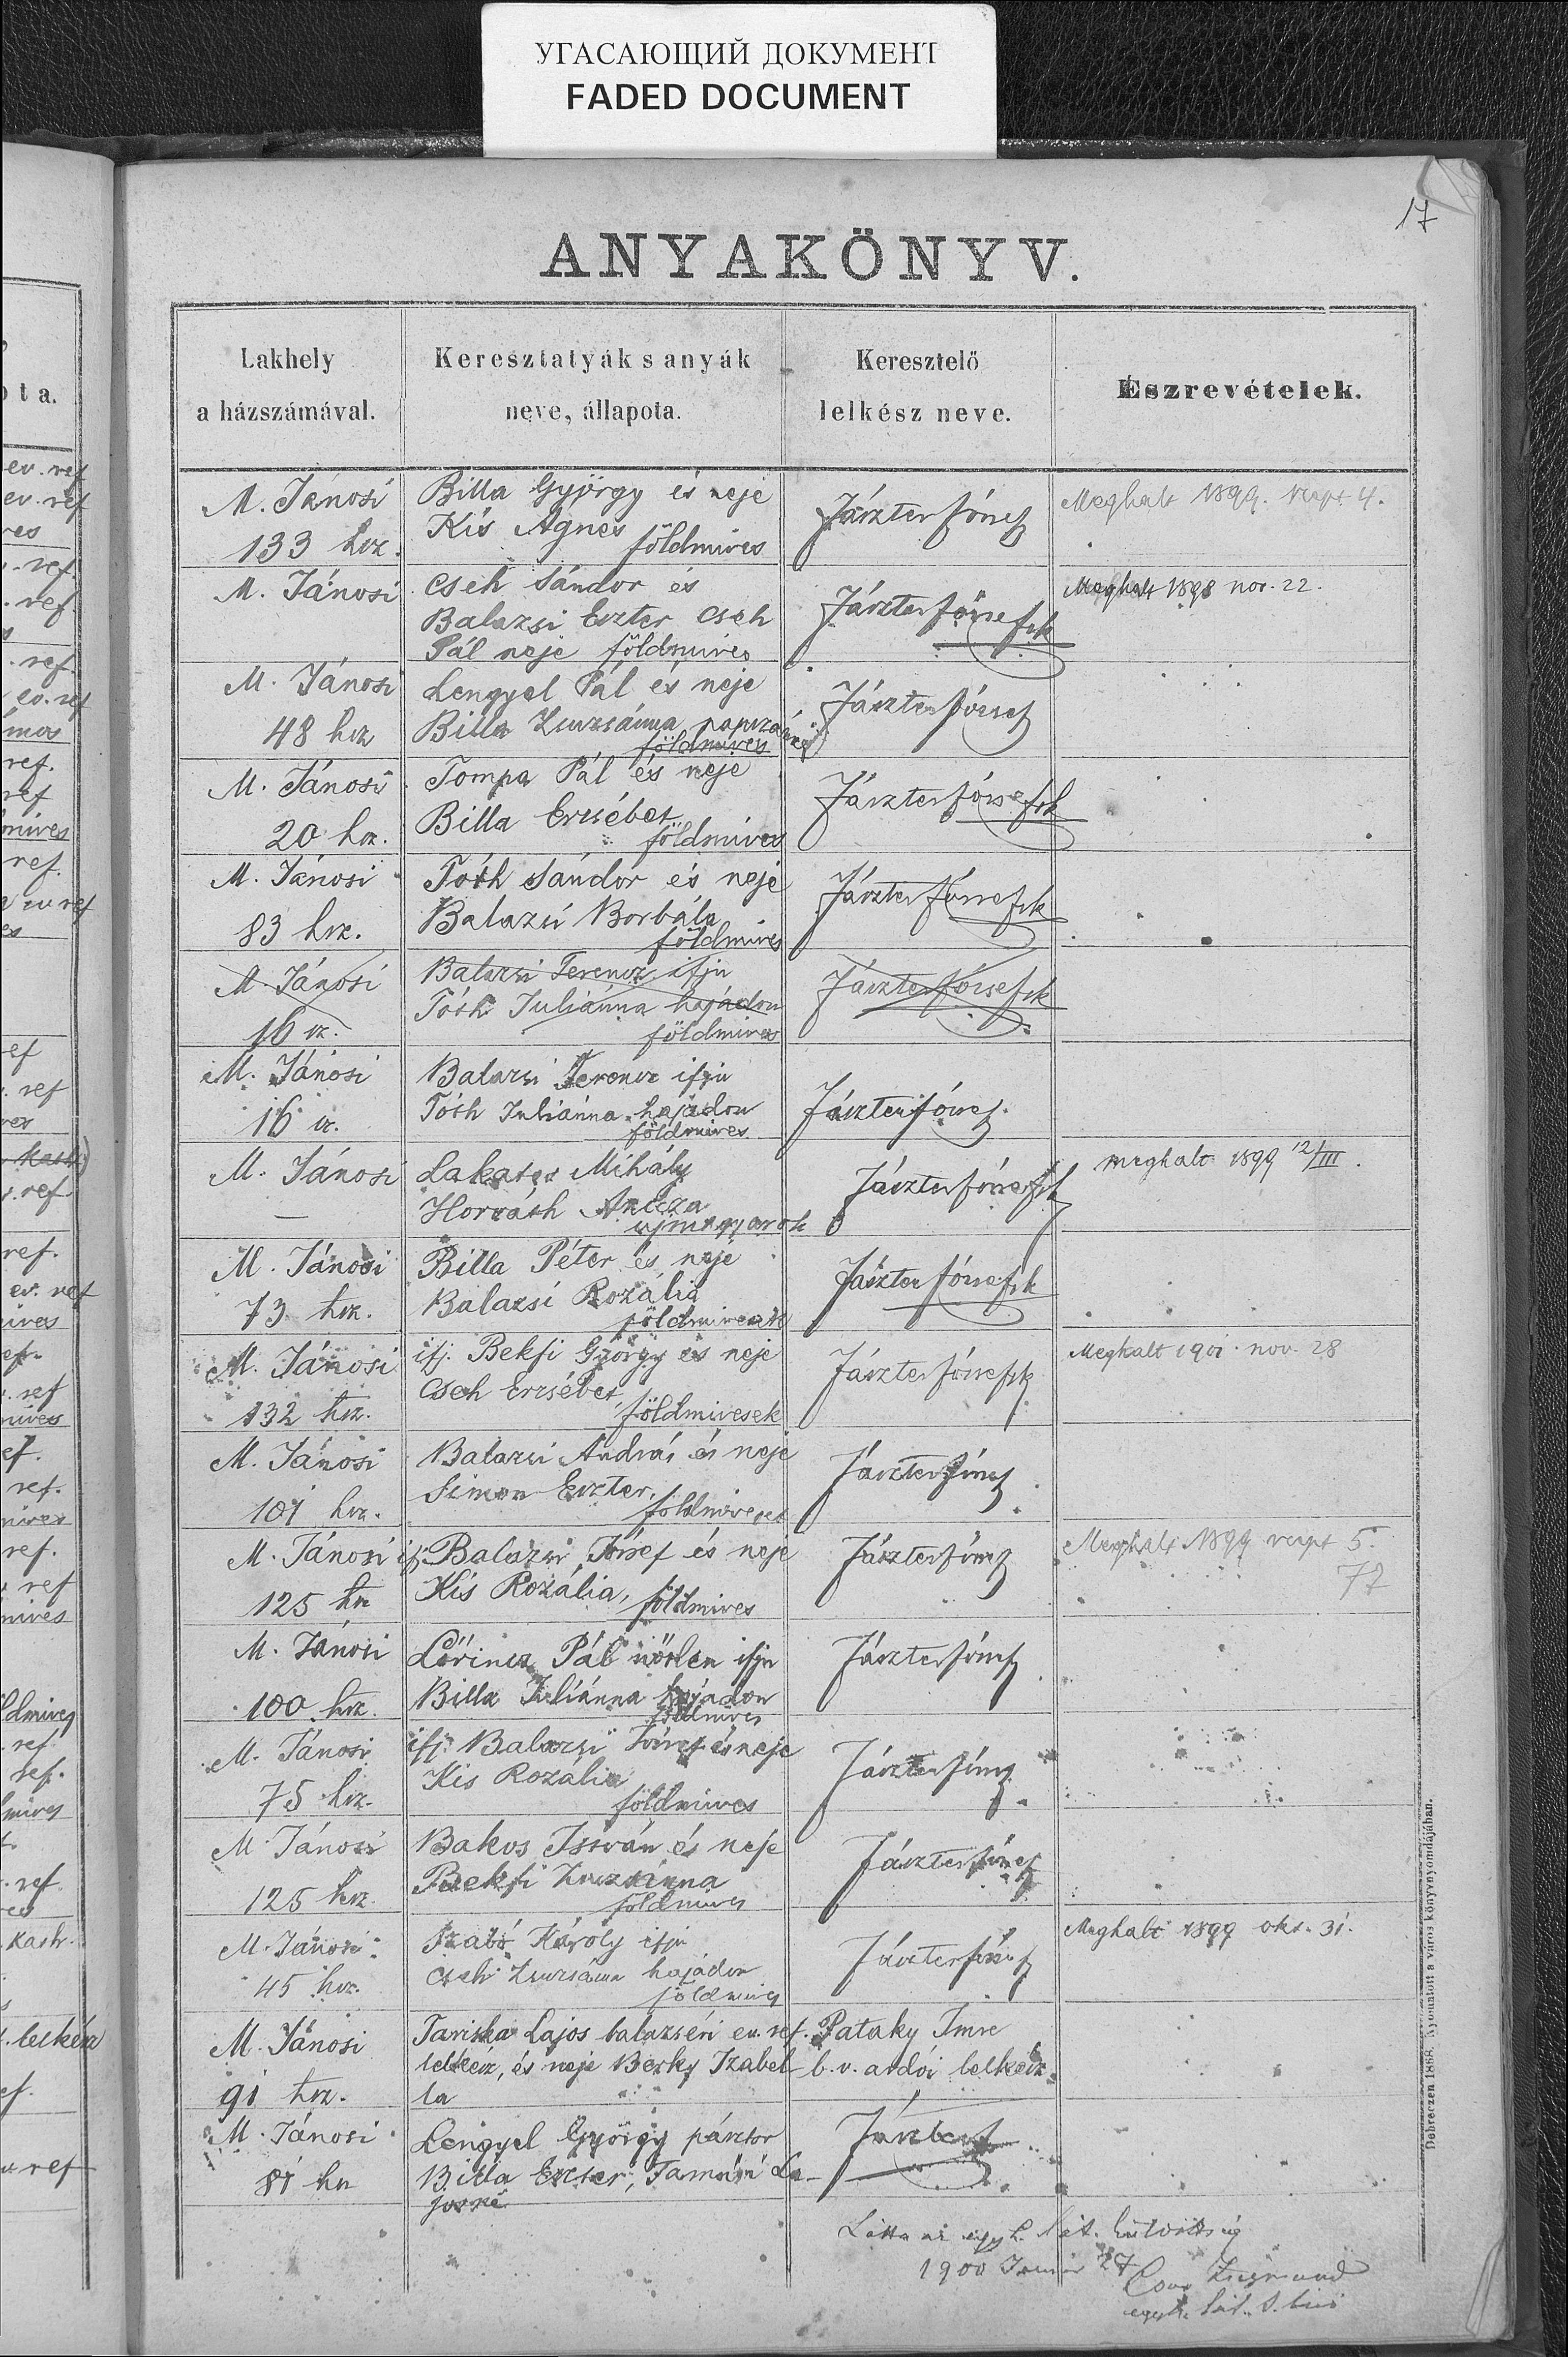 УГАСАЮЩИЙ ДОКУМЕНТ
FADED DOCUMENT
17
ANYAKÖNYV.
Lakhely
a házszámával.
Keresztatyák s anyák
neve, állapota.
Keresztelő
lelkész neve.
Észrevételek.
M. Jánosi
133 hsz.
Billa György és neje
Kis Ágnes
földmives
Jászter József
Meghalt 1899. szept. 4.
M. Jánosi
Cseh Sándor és
Balazsi Eszter Cseh
Pál neje földmives
Jászter József sk
Meghalt 1898 nov. 22.
M. Jánosi
48 hsz
Lengyel Pál és neje
Billa Zsuzsánna
földmives
Jászter József
M. Jánosi
20 hsz.
Tompa Pál és neje
Billa Erzsébet
földmives
Jászter József sk
M. Jánosi
83 hsz.
Tóth Sándor és neje
Balazsi Borbála
földmives
Jászter József sk
M. Jánosi
16 sz.
Balazsi Ferencz ifju
Tóth Juliánna hajadon
földmives
Jászter József sk
M. Jánosi
16 sz.
Balazsi Ferencz ifju
Tóth Juliánna hajadon
földmives
Jászter József
M. Jánosi
—
Lakatos Mihály
Horváth
ujmagyarok
Jászter József sk
meghalt 1899 12/III.
M. Jánosi
73 hsz.
Billa Péter és neje
Balazsi Rozália
földmivesek
Jászter József sk
M. Jánosi
132 hsz.
ifj. Bekfi György és neje
Cseh Erzsébet
földmivesek
Jászter József sk
Meghalt 1901. nov. 28
M. Jánosi
101 hsz.
Balazsi András és neje
Simon Eszter,
földmivesek
Jászter József
M. Jánosi
125 hsz
ifj. Balazsi József és neje
Kis Rozália, földmives
Jászter József
Meghalt 1899 szept 5.
77
M. Jánosi
100 hsz.
Lőrincz Pál nőtlen ifju
Billa Juliánna hajadon
földmives
Jászter József
M. Jánosi
75 hsz.
ifj. Balazsi József és neje
Kis Rozália
földmives
Jászter József
M. Jánosi
125 hsz
Bakos István és neje
Bekfi Zsuzsánna
földmives
Jászter József
M. Jánosi
45 hsz.
Szabó Károly ifju
Cseh Zsuzsánna hajadon
földmives
Jászter József
Meghalt 1899 okt. 31.
M. Jánosi
91 hsz.
Lajos balazséri ev. ref.
lelkész, és neje Bezky Izabel
la
Pataky Imre
b. v. ardói lelkész
M. Jánosi
81 hsz
Lengyel György pásztor
Billa Eszter, La-
josné
Látta az egyh.
1900 27
Zsigmond
Debreczen 1868. Nyomtatott a város könyvnyomdájában.
ev. ref
ev. ref
ref.
ref.
ref.
ev. ref
ref.
ref
ref.
ev. ref
ref
ref.
ref.
ev. ref
ref
ref.
ref.
ref
ref.
ref.
ref
kath.
lelkész
ref